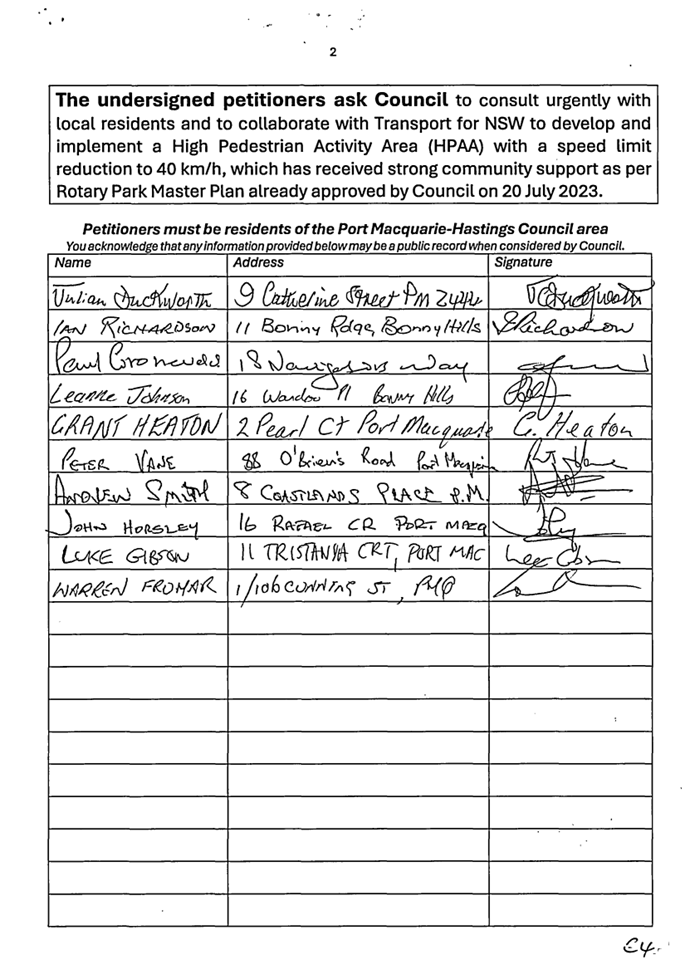 2
The undersigned petitioners ask Council to consult urgently with
local residents and to collaborate with Transport for NSW to develop and
implement a High Pedestrian Activity Area (HPAA) with a speed limit
reduction to 40 km/h, which has received strong community support as per
Rotary Park Master Plan already approved by Council on 20 July 2023.
Petitioners must be residents of the Port Macquarie-Hastings Council area
You acknowledge that any information provided below may be a public record when considered by Council.
Name Address Signature
Julian Duckworth 9 Catherine Street PM 2444
IAN RICHARDSON 11 Bonny Rdge, Bonny Hills Richardson
Paul 18 Navigators way
Leanne Johnson 16 Pl Bonny Hills
GRANT HEATON 2 Pearl Ct Port Macquarie G. Heaton
PETER VANE 88 O'Brien's Road Port Macquarie
ANDREW SMITH 8 COASTLANDS PLACE P.M.
JOHN HORSLEY 16 RAFAEL CR PORT MACQ
LUKE GIBSON 11 TRISTANIA CRT, PORT MAC
WARREN FROMAR 1/106 ST, PMQ
E4